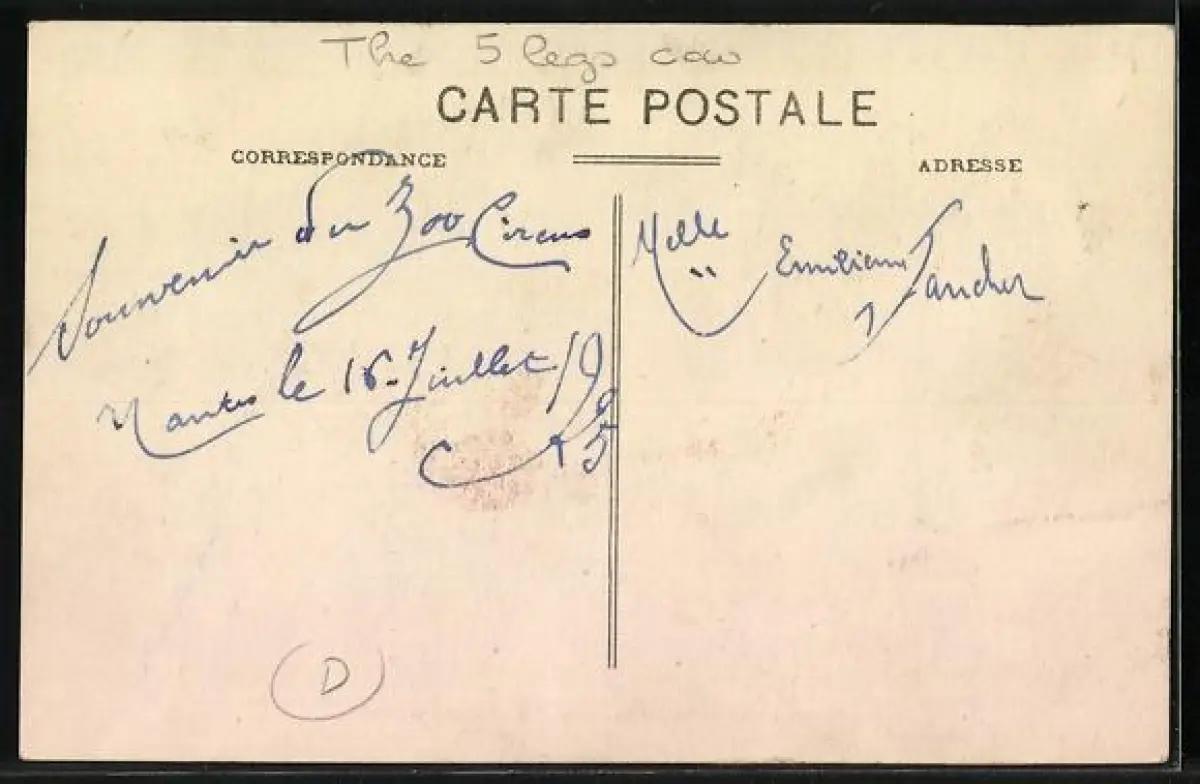 The 5 legs cow
CARTE POSTALE
CORRESPONDANCE
ADRESSE
Souvenir du Zoo Circus
Nantes le 16 Juillet 19
Melle Emilienne
D